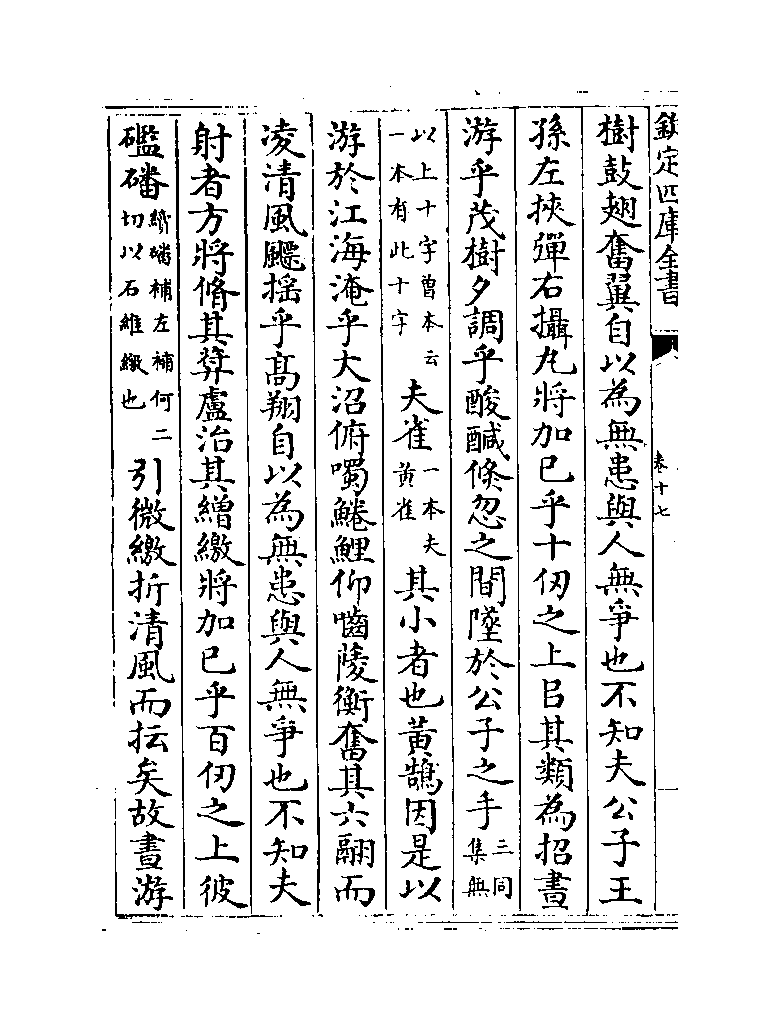 欽定四庫全書 卷十七
樹鼓翅奮翼自以為無患與人無爭也不知夫公子王
孫左挾彈右攝丸將加已乎十仞之上㠯其類為招晝
游乎茂樹夕調乎酸醎倐忽之間墜於公子之手三同集無
以上十字曽本云一本有此十字夫雀一本夫黄雀其小者也黄鵠因是以
游於江海淹乎大沼俯噣鯉仰嚙䔖衡奮其六翮而
凌清風飃揺乎髙翔自以為無患與人無爭也不知夫
射者方將脩其盧治其繒繳將加已乎百仞之上彼
礛磻續磻補左補何二切以石維繳也引微繳折清風而抎矣故晝游